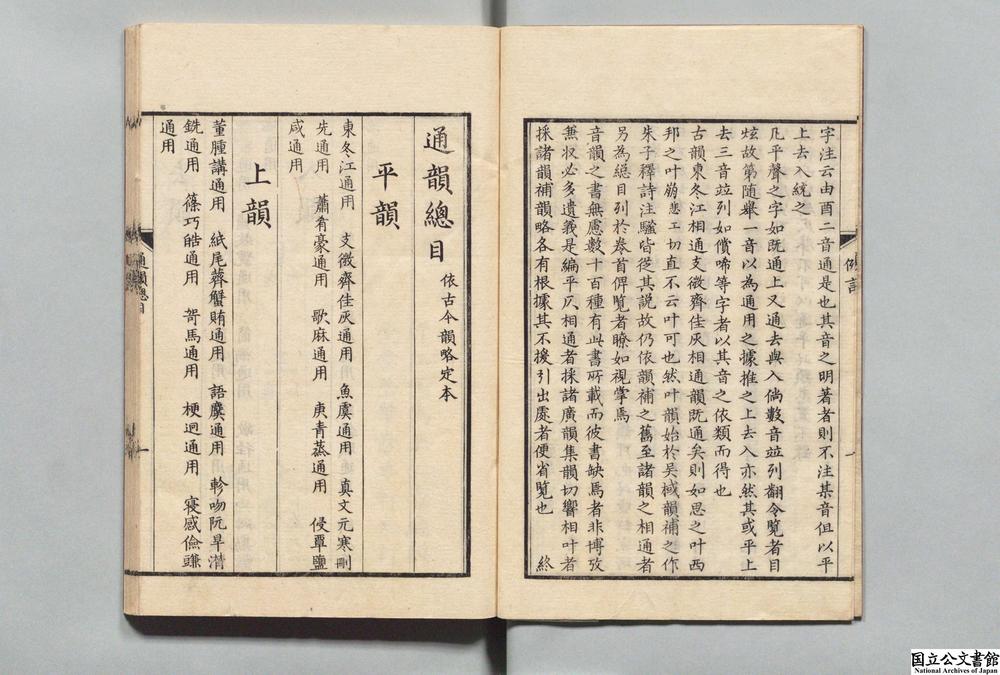 字注云由酉二音通是也其音之明著者則不注某音但以平
上去入統之
凢平聲之字如既通上又通去與入倘數音竝列翻令覽者目
炫故第随舉一音以為通用之據推之上去入亦然其或平上
去三音竝列如償唏等字者以其音之依類而得也
古韻東冬江相通支微齊佳灰相通韻既通矣則如思之叶西
邦之叶崩悲工切直不云叶可也然叶韻始於吴棫韻補之作
朱子釋詩注騷皆從其説故仍依韻補之舊至諸韻之相通者
另為總目列於卷首俾覽者瞭如視掌焉
音韻之書無慮數十百種有此書所載而彼書缺焉者非博攷
無収必多遺義是編平仄相通者採諸廣韻集韻切響相叶者
採諸韻補韻略各有根據其不援引出處者便省覽也 終
例言
一
通韻總目 依古今韻略定本
平韻
東冬江通用 支微齊佳灰通用 魚虞通用 真文元寒刪
先通用 蕭肴豪通用 歌麻通用 庚青蒸通用 侵覃鹽
咸通用
上韻
董腫講通用 紙尾薺蟹賄通用 語麌通用 軫吻阮旱潸
銑通用 篠巧皓通用 哿馬通用 梗迥通用 寝感儉豏
通用
通韻總目
一
国立公文書館
National Archives of Japan